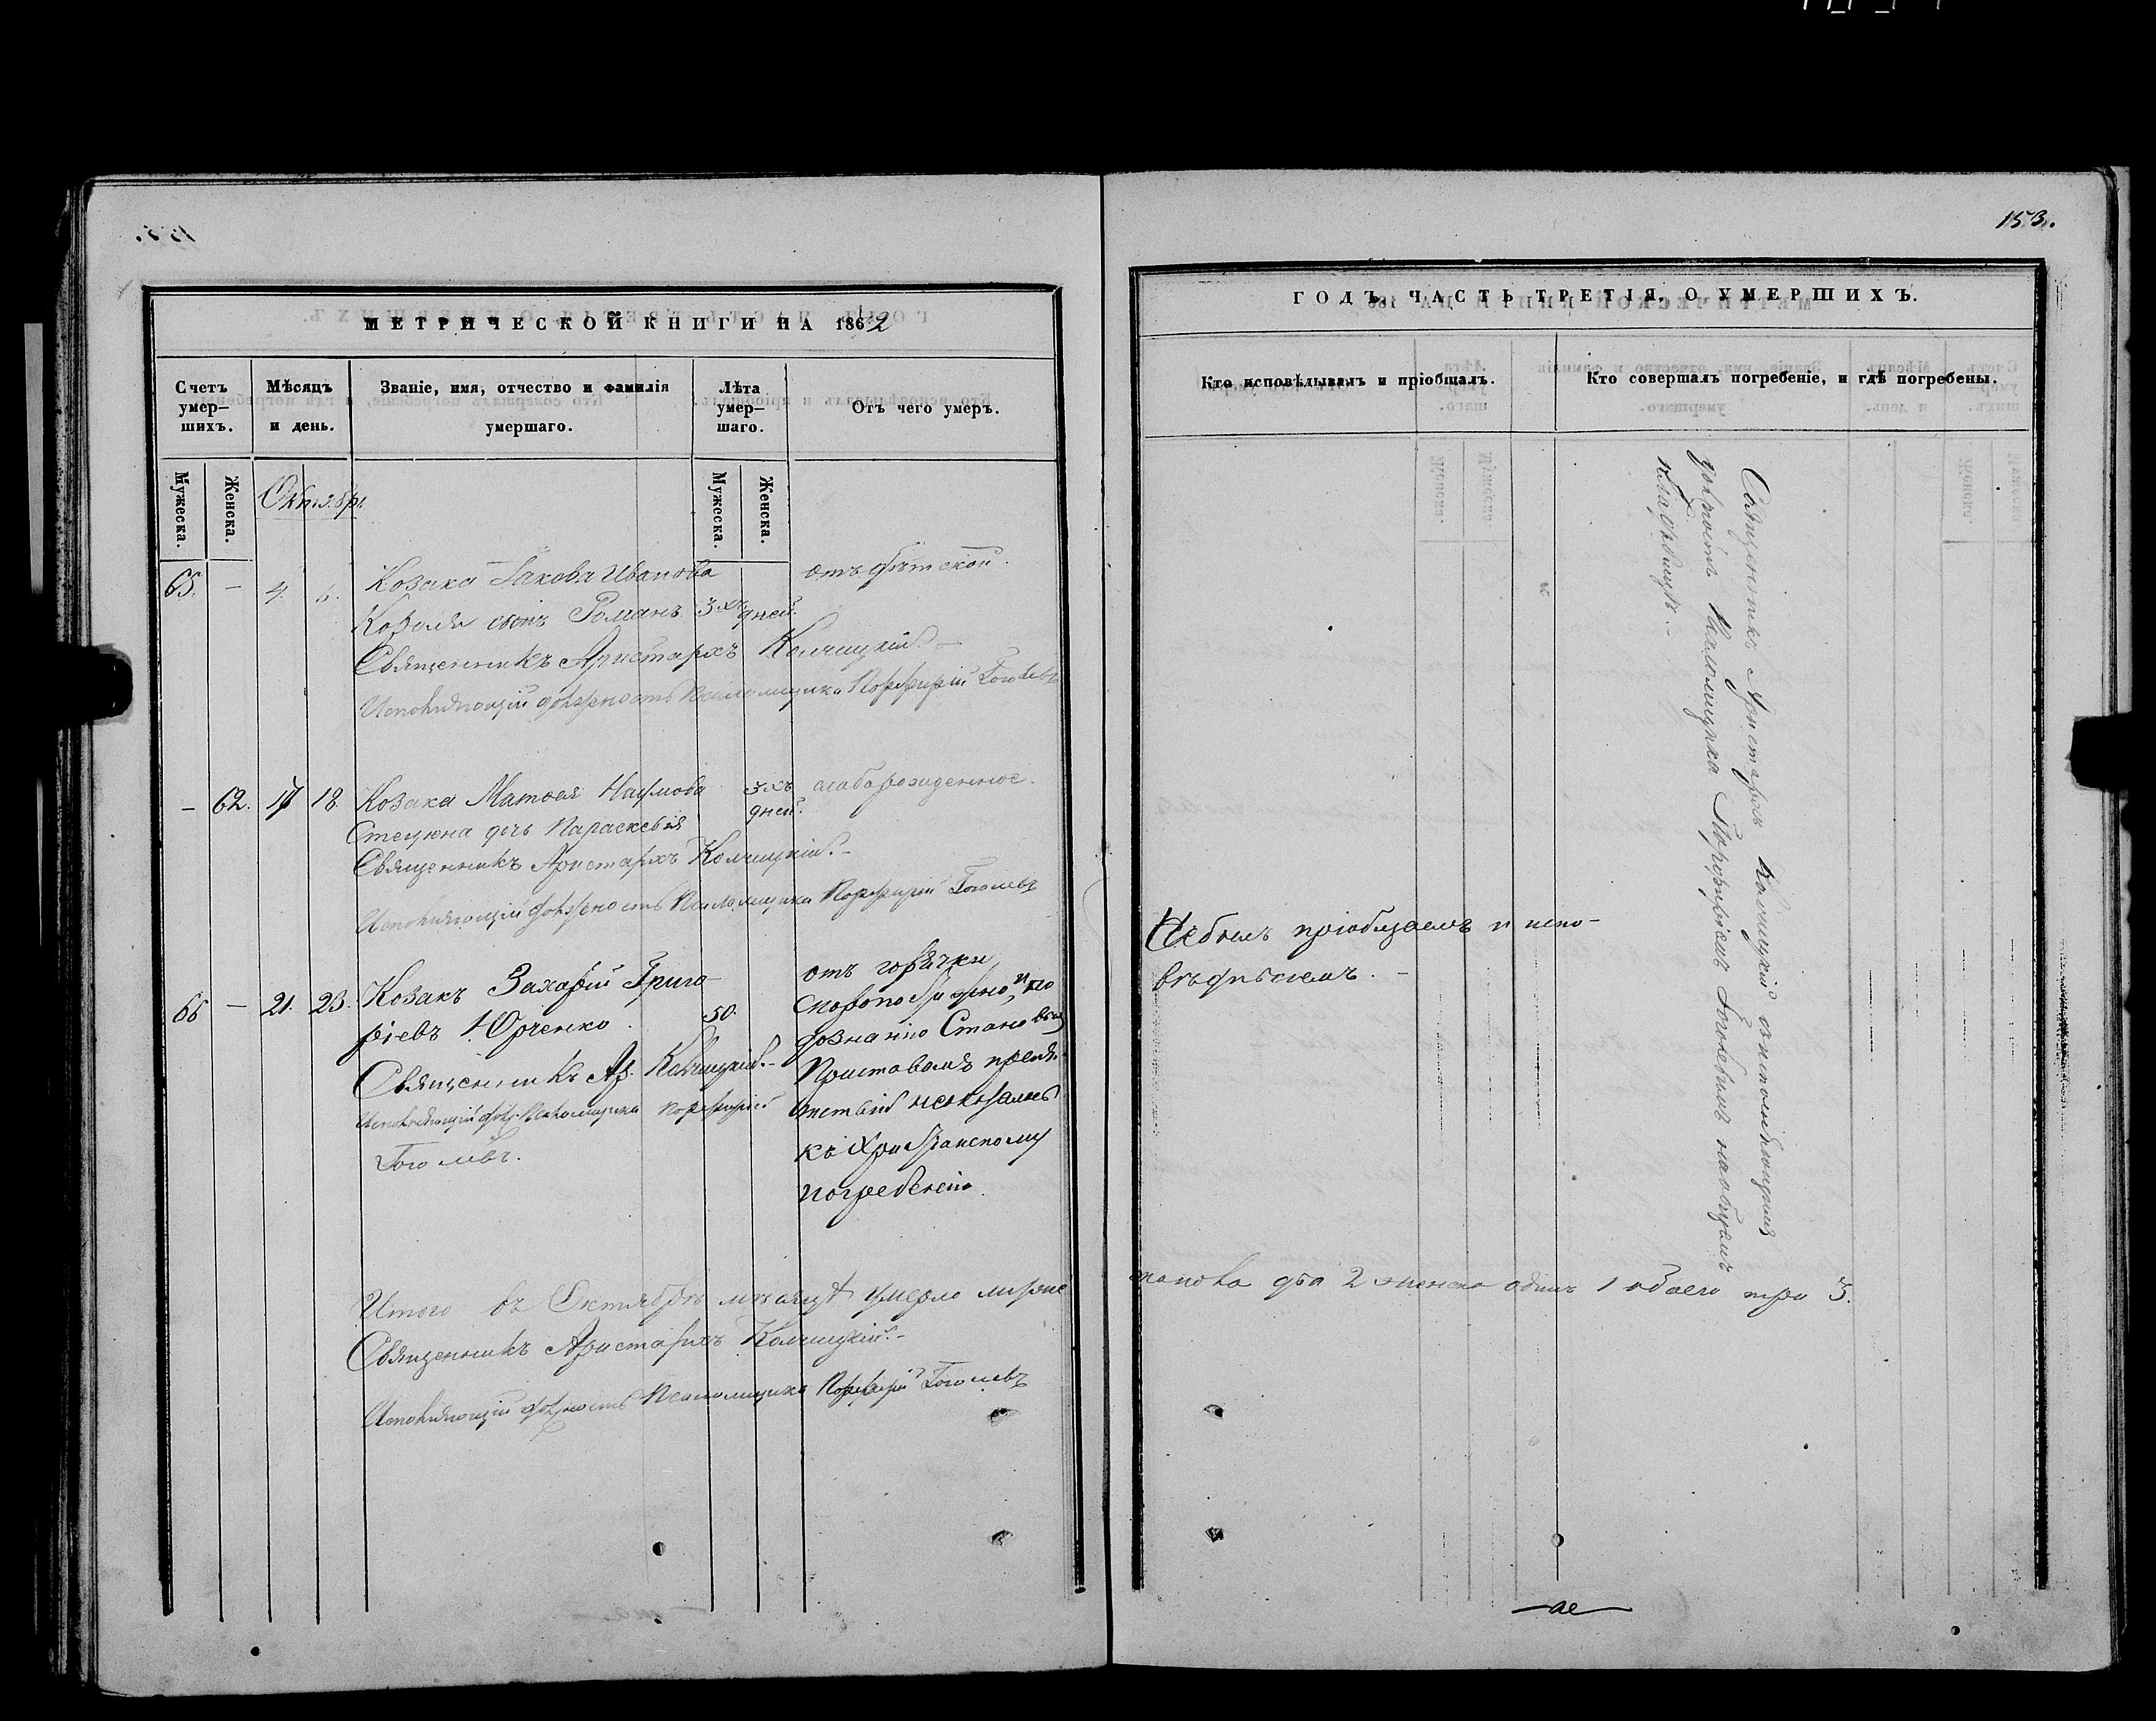 153.
МЕТРИЧЕСКОЙ КНИГИ НА 1862
Счетъ умер—шихъ.
Мѣсяцъ и день.
Званіе, имя, отчество и фамилія умершаго.
Лѣта умер—шаго.
Отъ чего умеръ.
Мужеска.
Женска.
Мужеска.
Женска.
65. — 4.
Козака Іакова Иванова
Коваля сынъ Романъ 3хъ дней.
отъ дѣтской.
Священникъ Аристархъ Колчицкій.—
Исполняющій должность Псаломщика Порфирій Гоголевъ
— 62. 17 18. Козака Матѳея Наумова
Стецюна дочь Параскевія
3хъ
дней.
слаборожденное.
Священникъ Аристархъ Колчицкій.—
Исполняющій должность Псаломщика Порфирій Гоголевъ
66 — 21. 23. Козакъ Захарій Григо-
ріевъ Юрченко. 50.
Священникъ Ар. Колчицкій.—
Исполняющій долж. Псаломщика Порфирій
Гоголевъ.
отъ горячки
скоропостижно, и по
дознанію Становымъ
Приставомъ препят-
ствій неоказалось
къ Христіанскому
погребенію.
Итого въ Октябрѣ мѣсяцѣ умерло мужес
Священникъ Аристархъ Колчицкій.—
Исполняющій должность Псаломщика Порфирій Гоголевъ
ГОДЪ, ЧАСТЬ ТРЕТІЯ, О УМЕРШИХЪ.
Кто исповѣдывалъ и пріобщалъ.
Кто совершалъ погребеніе, и гдѣ погребены.
Священникъ Аристархъ Колчицкій съ исполняющимъ
должность Псаломщика Порфиріемъ Гоголевымъ на общемъ
кладбищѣ.—
Небылъ пріобщаемъ и испо-
вѣдуемъ.—
два 2 женска одинъ 1 обоего три 3.